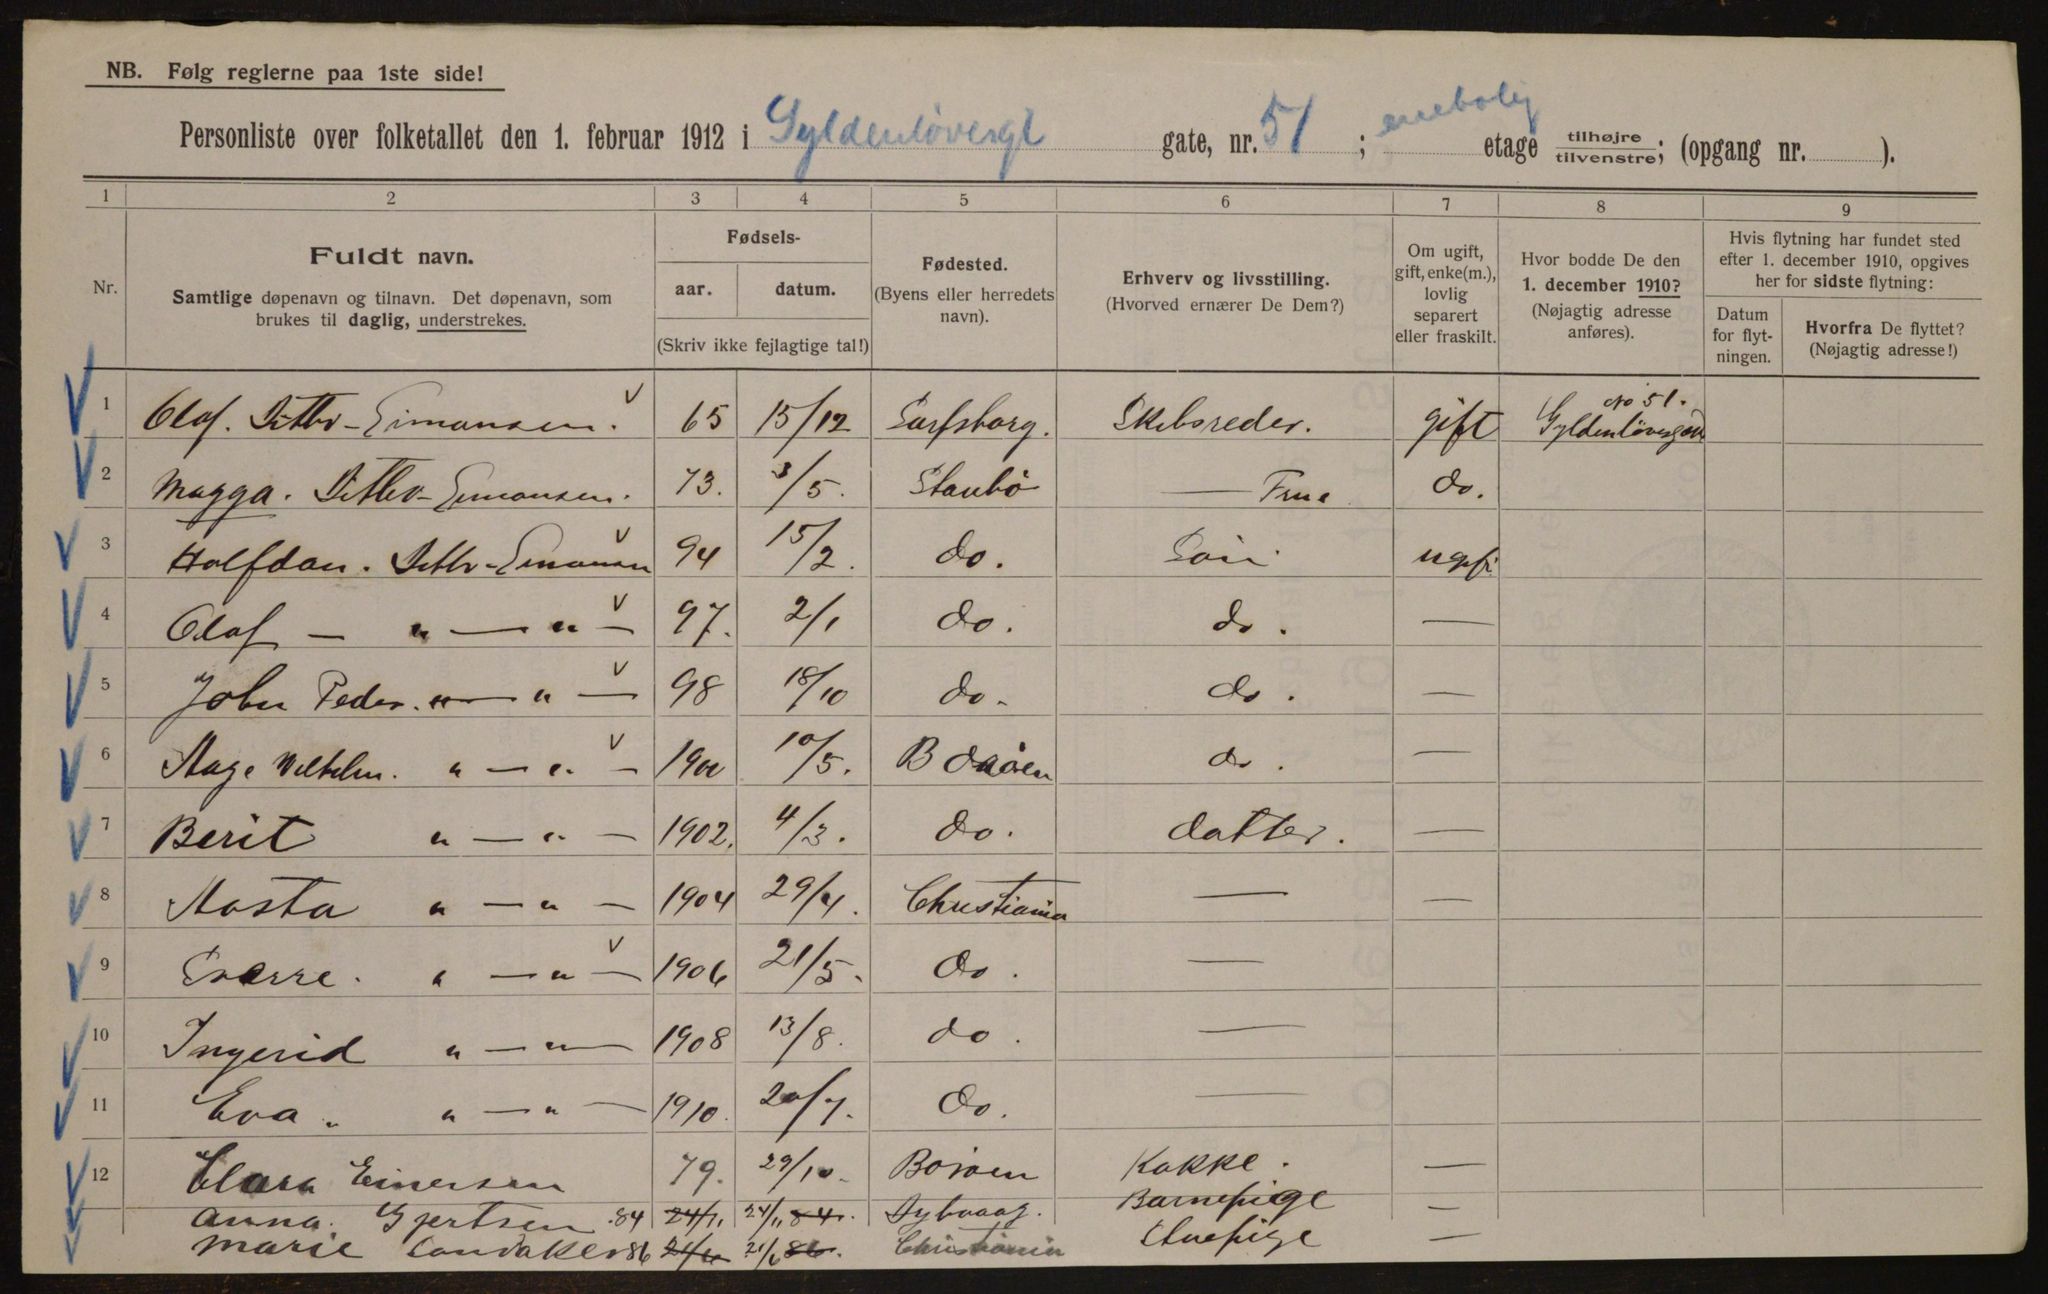 NB. Følg reglerne paa 1ste side!
Personliste over folketallet den 1. februar 1912 i Gyldenløvesgt gate, nr. 51; enebolig etage tilhøjre/tilvenstre; (opgang nr. ).
1 2 3 4 5 6 7 8 9
Nr.
Fuldt navn.
Samtlige døpenavn og tilnavn. Det døpenavn, som
brukes til daglig, understrekes.
Fødsels-
aar. datum.
(Skriv ikke fejlagtige tal!)
Fødested.
(Byens eller herredets
navn).
Erhverv og livsstilling.
(Hvorved ernærer De Dem?)
Om ugift,
gift, enke(m.),
lovlig
separert
eller fraskilt.
Hvor bodde De den
1. december 1910?
(Nøjagtig adresse
anføres).
Hvis flytning har fundet sted
efter 1. december 1910, opgives
her for sidste flytning:
Datum
for flyt-
ningen.
Hvorfra De flyttet?
(Nøjagtig adresse!)
1 Olaf. Ditlev-Simonsen. 65 15/12 Sarfsborg. Skibsreder. gift No 51. Gyldenløvesgade
2 Magga. Ditlev-Simonsen. 73. 3/5. Staubø — Frue do.
3 Halfdan. Ditlev-Simonsen 94 15/2. do. Søn ugift
4 Olaf — " — " — 97. 2/1 do. do. —
5 John Peder. " — " — 98 18/10 do. do. —
6 Aage Wilhelm. " — " — 1900 10/5. Borøen do. —
7 Berit " — " — 1902. 4/3. do. datter. —
8 Aasta " — " — 1904 29/4. Christiania — —
9 Sverre. " — " — 1906 21/5. do. —
10 Ingerid " — " — 1908 13/8. do. —
11 Eva. " — " — 1910. 20/7. do. —
12 Clara Einersen 79. 29/10. Borøen Kokke. —
Anna. Gjertsen .84 24/11 24/11 84. Dybvaag. Barnepige —
Marie Sandaker 86 21/6 21/6 86. Christiania Stuepige —